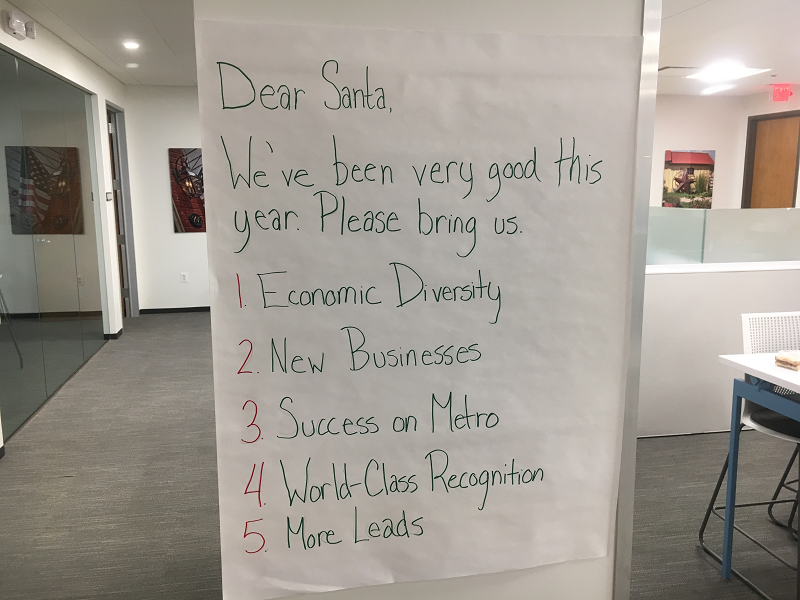 Dear Santa,
We've been very good this
year. Please bring us.
1. Economic Diversity
2. New Businesses
3. Success on Metro
4. World-Class Recognition
5. More Leads
EXIT